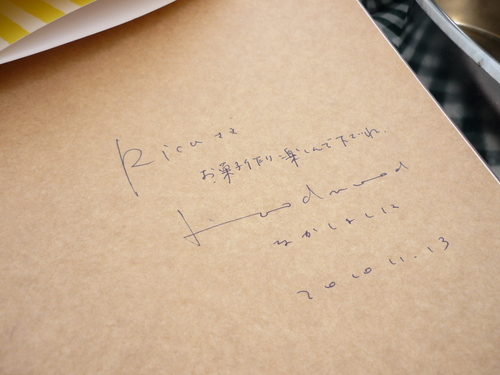 お菓子作り楽しんで下さいね。
foodmood
なかしましほ
2010.11.13